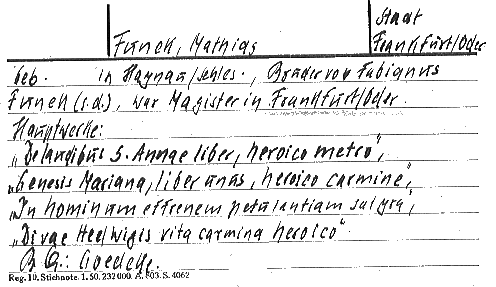 Stadt
Funck, Mathias Frankfurt/Oder
geb. in Haynau/Schles., Bruder von Fabianus
Funck (s.d.), war Magister in Frankfurt/Oder.
Hauptwerke:
„De laudibus S. Annae liber, heroico metro",
„Genesis Mariana, liber unus, heroico carmine",
„In hominum effrenem petulantiam satyra",
„Divae Hedwigis vita carmina heroico"
B Q.: Goedeke.
Reg. 10. Stichnote. 1. 50. 232 000. A. 803. S. 4062